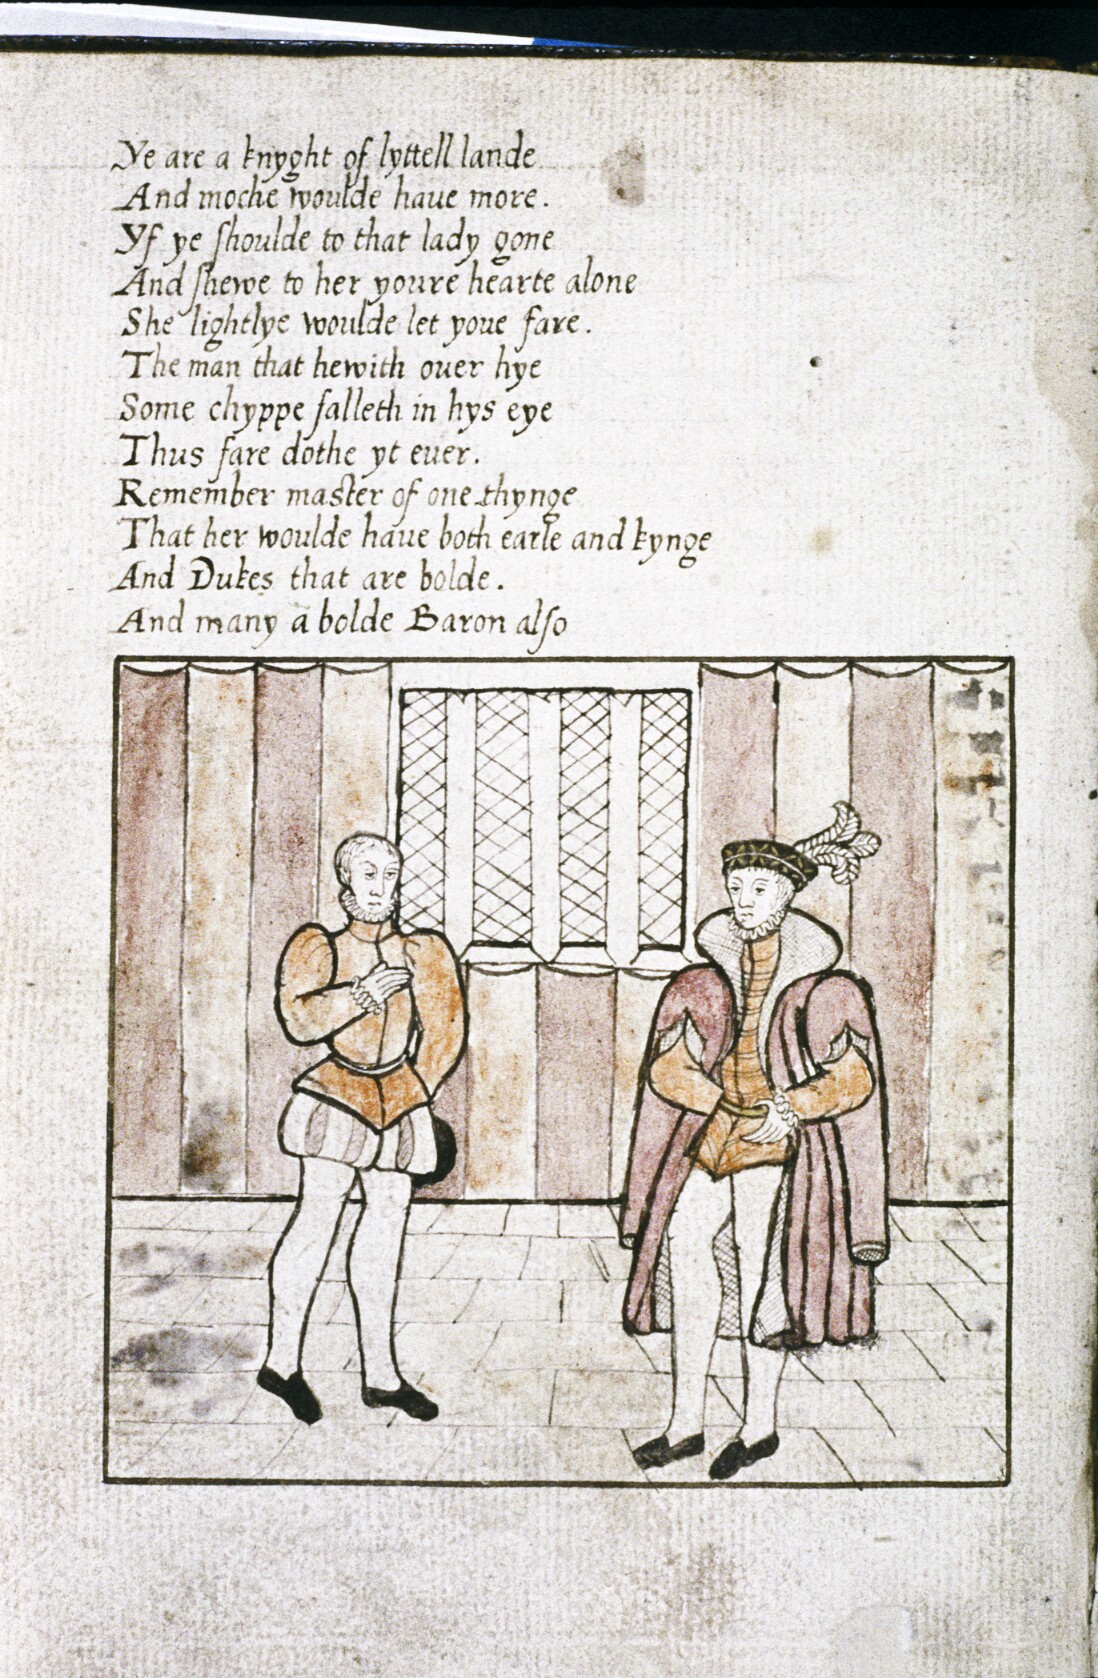 Ye are a knyght of lyttell lande
And moche woulde haue more.
Yf ye shoulde to that lady gone
And shewe to her youre hearte alone
She lightlye woulde let youe fare.
The man that hewith ouer hye
Some chyppe falleth in hys eye
Thus fare dothe yt euer.
Remember master of one thynge
That her woulde haue both earle and kynge
And Dukes that are bolde.
And many a bolde Baron also